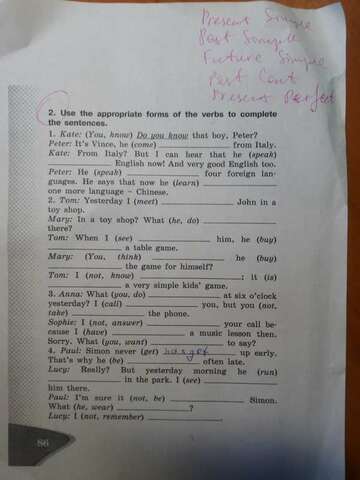 Present Simple
Past Simple
Future Simple
Past Cont
Present Perfect
2. Use the appropriate forms of the verbs to complete
the sentences.
1. Kate: (You, know) Do you know that boy, Peter?
Peter: It's Vince, he (come) ____________ from Italy.
Kate: From Italy? But I can hear that he (speak)
____________ English now! And very good English too.
Peter: He (speak) ____________ four foreign lan-
guages. He says that now he (learn) ____________
one more language – Chinese.
2. Tom: Yesterday I (meet) ____________ John in a
toy shop.
Mary: In a toy shop? What (he, do) ____________
there?
Tom: When I (see) ____________ him, he (buy)
____________ a table game.
Mary: (You, think) ____________ he (buy)
____________ the game for himself?
Tom: I (not, know) ____________; it (is)
____________ a very simple kids' game.
3. Anna: What (you, do) ____________ at six o'clock
yesterday? I (call) ____________ you, but you (not,
take) ____________ the phone.
Sophie: I (not, answer) ____________ your call be-
cause I (have) ____________ a music lesson then.
Sorry. What (you, want) ____________ to say?
4. Paul: Simon never (get) has got up early.
That's why he (be) ____________ often late.
Lucy: Really? But yesterday morning he (run)
____________ in the park. I (see) ____________
him there.
Paul: I'm sure it (not, be) ____________ Simon.
What (he, wear) ____________?
Lucy: I (not, remember) ____________.
86